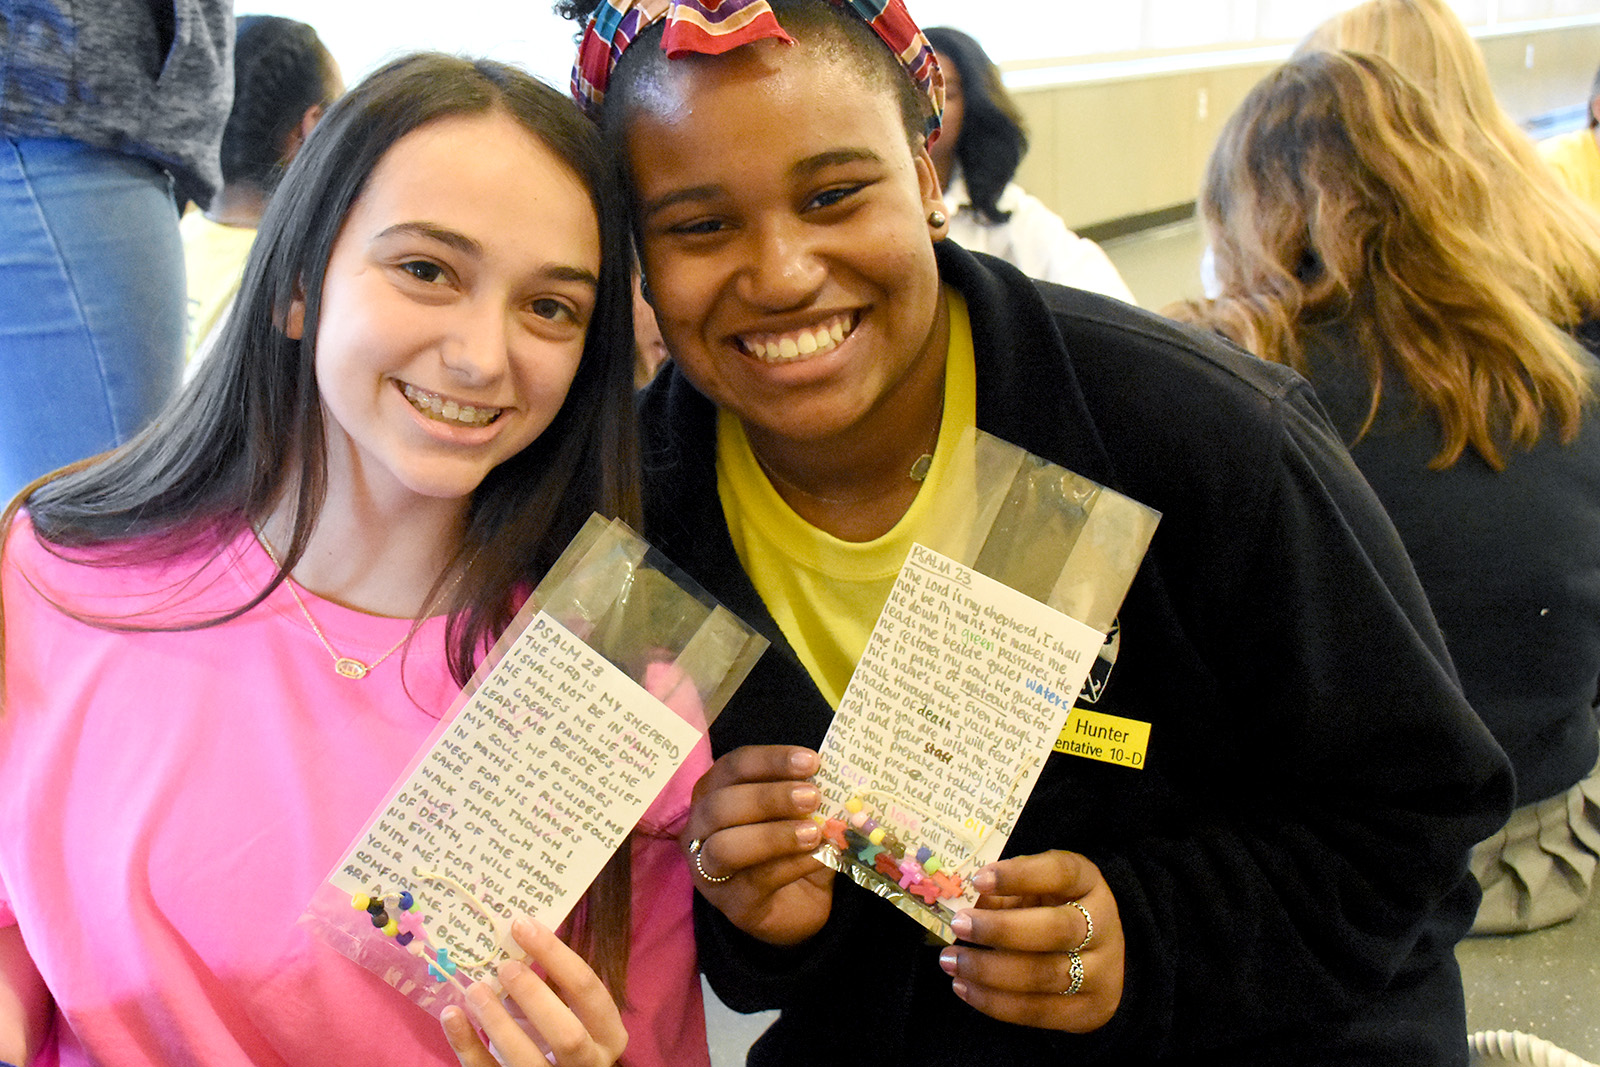 PSALM 23
THE LORD IS MY SHEPERD,
I SHALL NOT BE IN WANT.
HE MAKES ME LIE DOWN
IN GREEN PASTURES. HE
LEADS ME BESIDE QUIET
WATERS, HE RESTORES
MY SOUL. HE GUIDES ME
IN PATHS OF RIGHTEOUS-
NESS FOR HIS NAMES
SAKE. EVEN THOUGH I
WALK THROUGH THE
VALLEY OF THE SHADOW
OF DEATH, I WILL FEAR
NO EVIL, FOR YOU ARE
WITH ME; YOUR ROD
YOUR STAFF, THEY
COMFORT ME. YOU
ARE
BECA
PSALM 23
The Lord is my shepherd, I shall
not be in want. He makes me
lie down in green pastures, He
leads me beside quiet waters,
he restores my soul. He guides
me in paths of righteousness for
his name's sake. Even though I
walk through the valley of the
shadow of death, I will fear no
evil, for you are with me. Your
rod and your staff they comfort
me. You prepare a table before
me in the presence of my enemies
you anoit my head with oil
my cup over
good and love
all
will
Hunter
entative 10-D